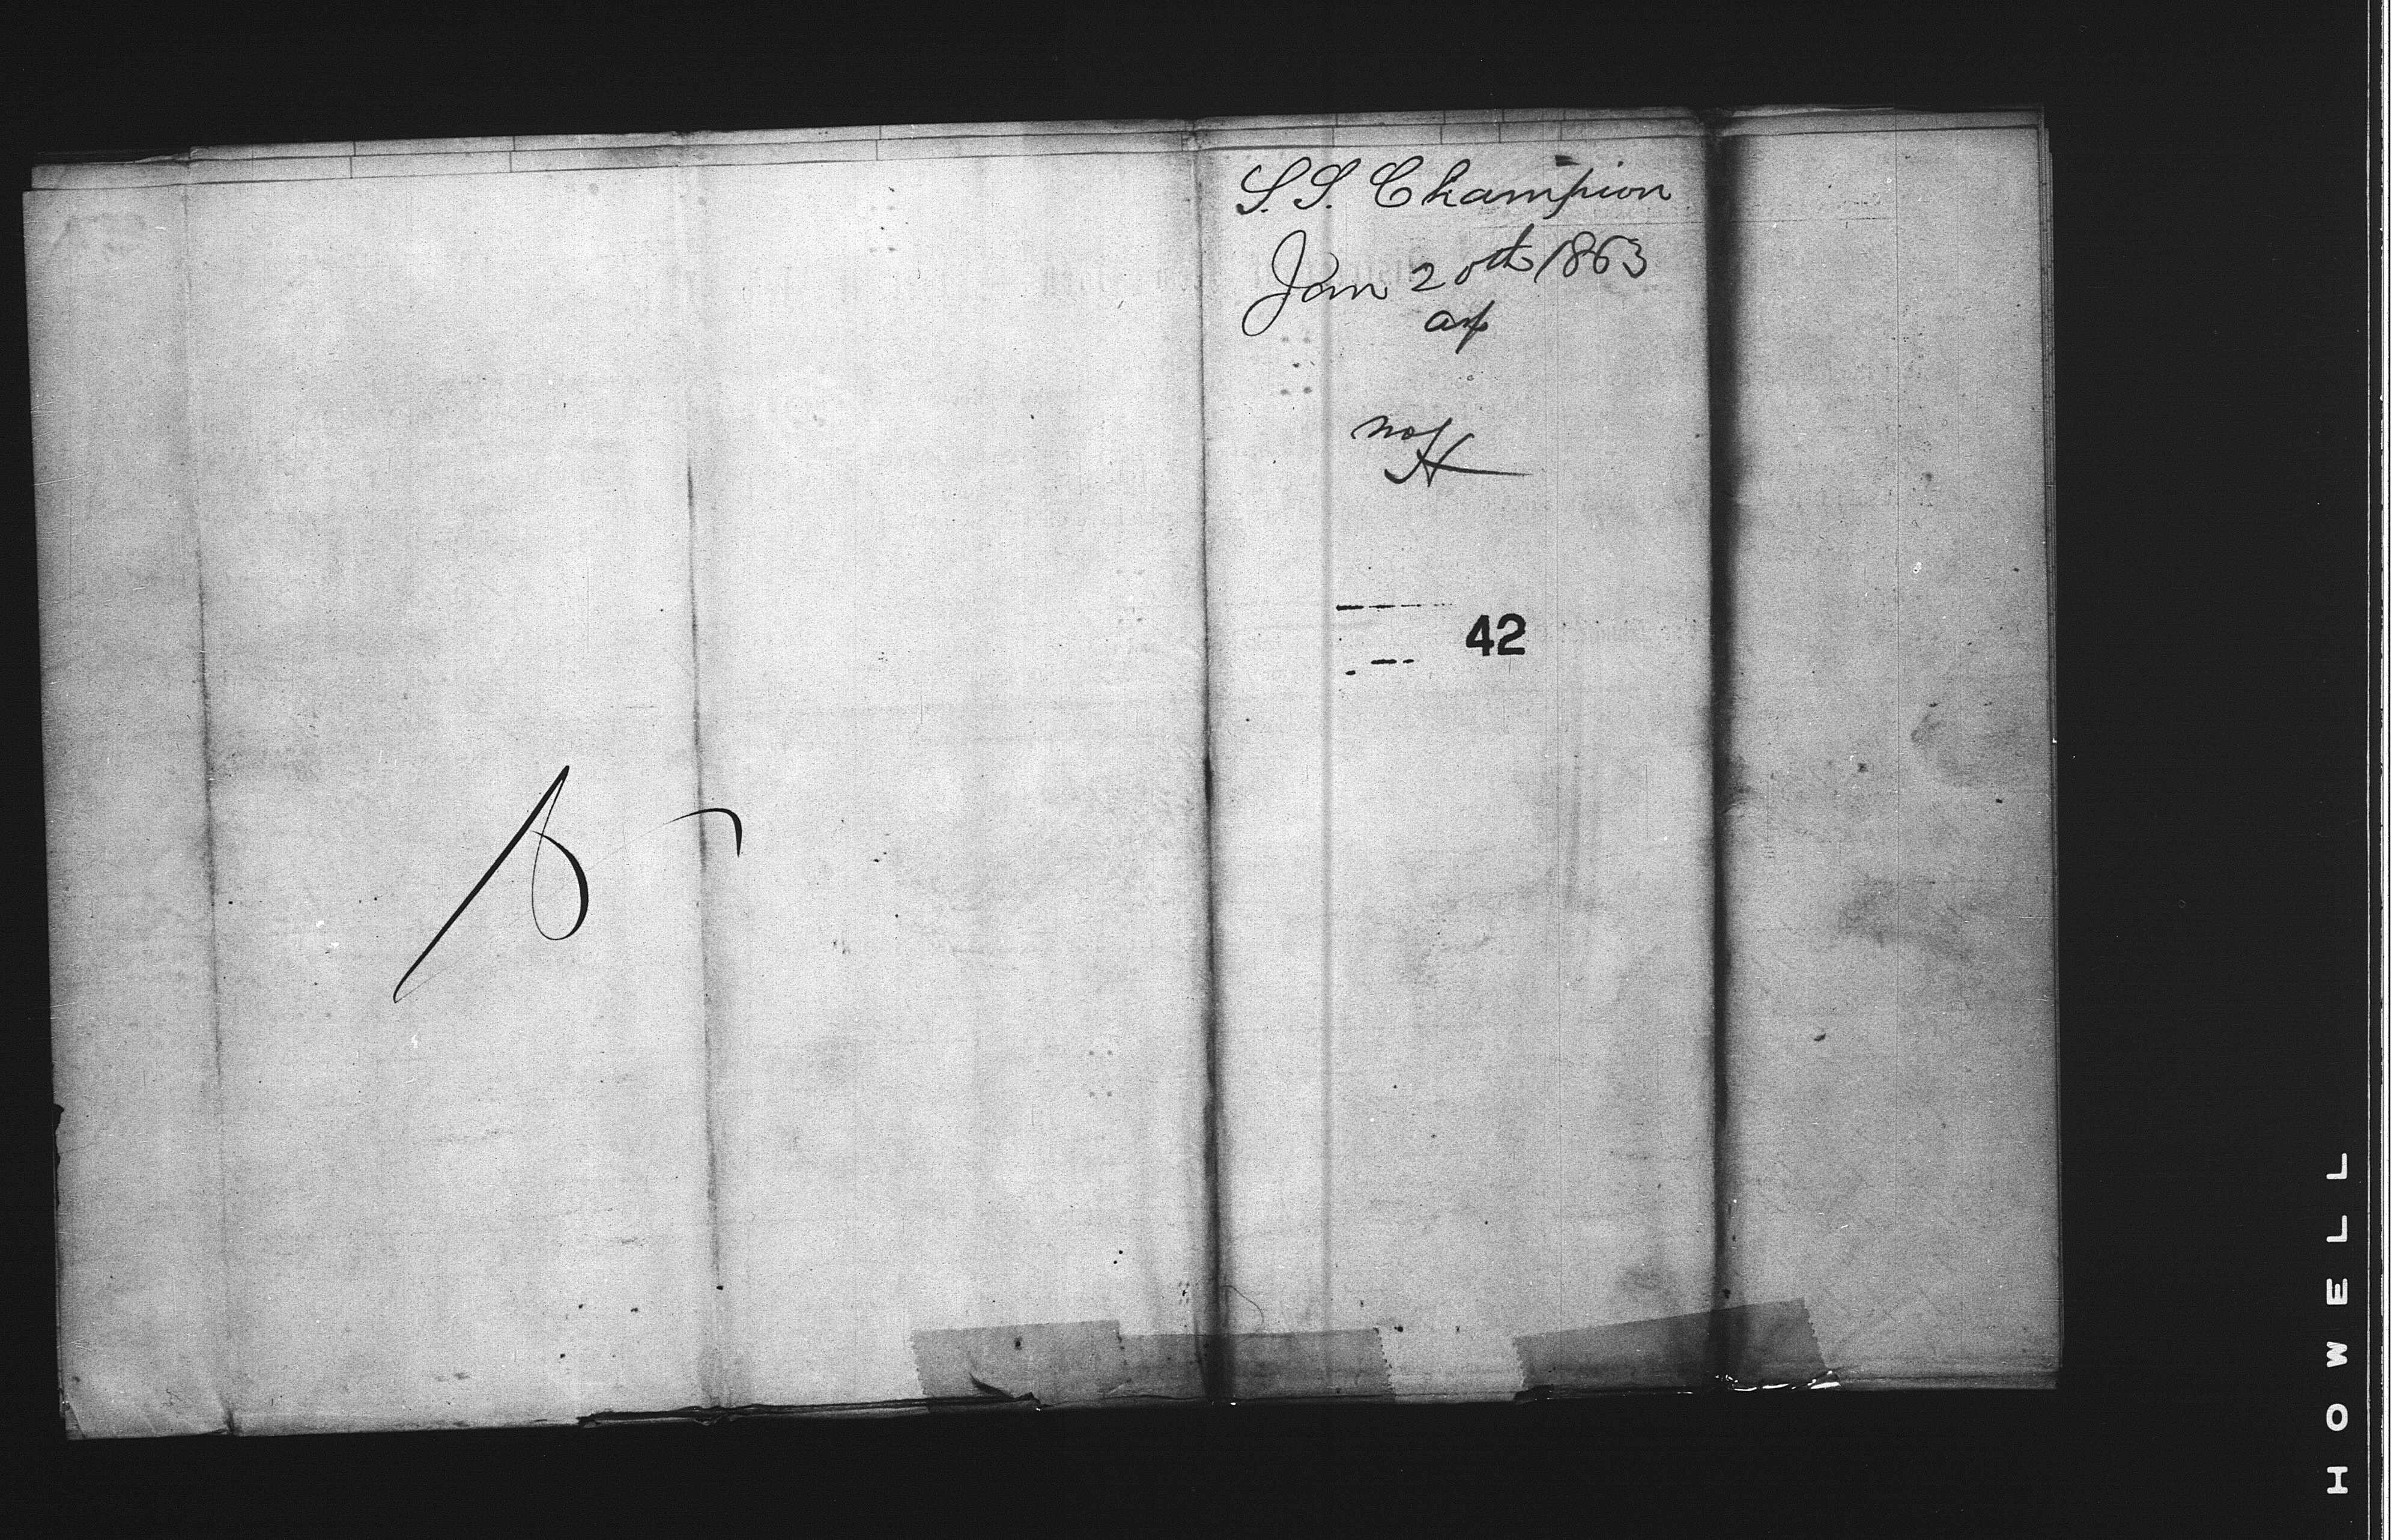 S.S. Champion
Jan 20th 1863
42
HOWELL